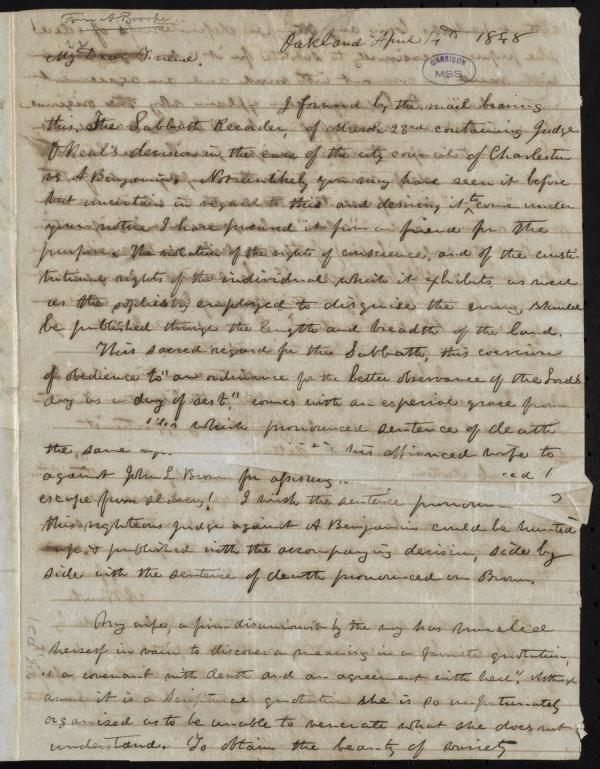 From A. Brooke
22
My Dear Friend. Oakland April 1st 1848
GARRISON
MSS.
I forward by the mail bearing
this, the Sabbath Recorder, of March 23rd containing Judge
O'Neal's decision in the case of the city council of Charleston
vs A Benjamin. Not unlikely you may have seen it before
but uncertain in regard to this and desiring it to come under
your notice I have procured it from a friend for the
purpose. The violation of the rights of conscience, and of the consti-
tutional rights of the individual which it exhibits, as well
as the sophistry employed to disguise the wrong, should
be published through the length and breadth of the land.
This sacred regard for the Sabbath, this coercion
of obedience to "an ordinance for the better observance of the Lord's
day as a day of rest," comes with an especial grace from
the same which pronounced sentence of death
against John L Brown for assisting his affianced wife to
escape from slavery! I wish the sentence
this righteous Judge against A Benjamin could be hunted
up & published with the accompanying decision, side by
side with the sentence of death pronounced on Brown.
My wife, a firm disunionist by the way has
herself in vain to discover a meaning in a favorite quotation,
"a covenant with death and an agreement with hell". Although
it is a Scriptural quotation she is so unfortunately
organized as to be unable to venerate what she does not
understand. To obtain the beauty of variety